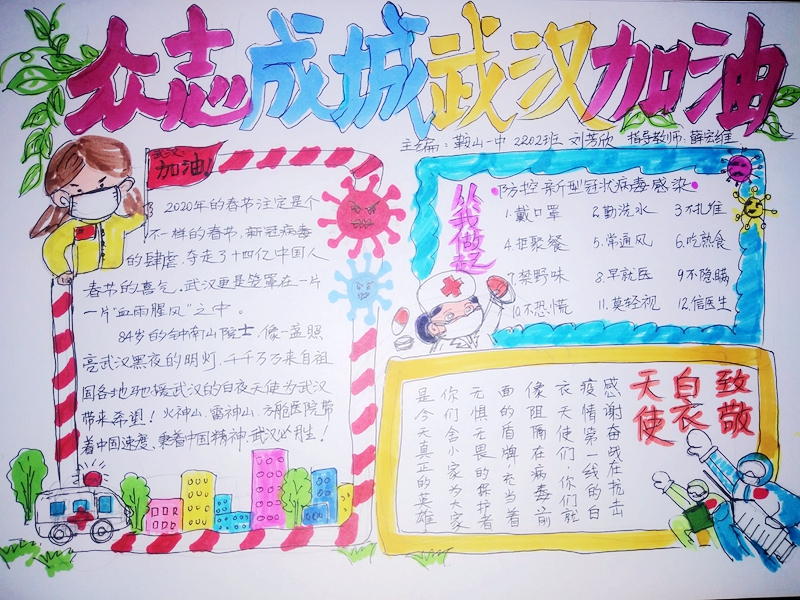 众志成城武汉加油
主编：鞍山一中 2202班 刘芳欣 指导教师：薛宏维
武汉
加油！
2020年的春节注定是个
不一样的春节，新冠病毒
的肆虐，夺走了十四亿中国人
春节的喜气。武汉更是笼罩在一片
一片“血雨腥风”之中。
84岁的钟南山院士，像一盏照
亮武汉黑夜的明灯，千千万万来自祖
国各地驰援武汉的白衣天使为武汉
带来希望！火神山、雷神山、方舱医院带
着中国速度、秉着中国精神，武汉必胜！
防控新型冠状病毒感染
从我做起
1.戴口罩 2.勤洗水 3不扎堆
4.拒聚餐 5.常通风 6.吃熟食
7.禁野味 8.早就医 9不隐瞒
10.不恐慌 11.莫轻视 12.信医生
致敬
白衣
天使
感谢奋战在抗击
疫情第一线的白
衣天使们，你们就
像阻隔在病毒前
面的盾牌，充当着
无惧无畏的保护者
你们舍小家为大家
是今天真正的英雄